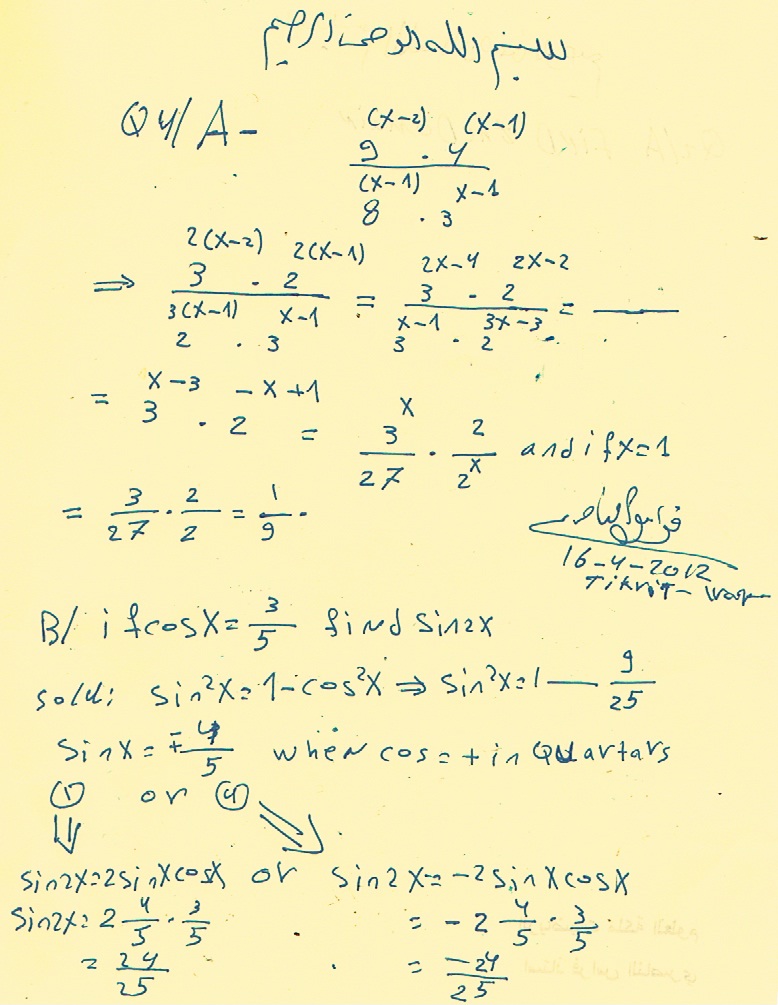 بسم الله الرحمن الرحيم
Q4/A- (9^(x-2) . 4^(x-1)) / (8^(x-1) . 3^(x-1))
⇒ (3^(2(x-2)) . 2^(2(x-1))) / (2^(3(x-1)) . 3^(x-1)) = (3^(2x-4) . 2^(2x-2)) / (3^(x-1) . 2^(3x-3)) = ———
= 3^(x-3) . 2^(-x+1) = 3^x/27 . 2/2^x and if x=1
= 3/27 . 2/2 = 1/9 .
16-4-2012
Tikrit-
B/ if cosx = 3/5 find sin2x
sin²x = 1-cos²x ⇒ sin²x = 1 — 9/25
sinx = ∓4/5 when cos = + in Quartars
① or ④
sin2x=2sinxcosx or sin2x=-2sinxcosx
sin2x = 2 4/5 . 3/5 = -2 4/5 . 3/5
= 24/25 . = -24/25